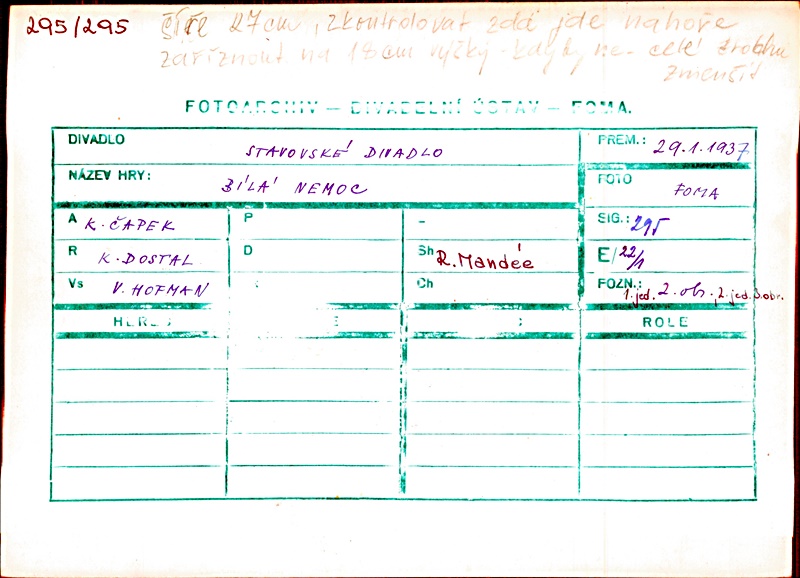 295/295
šíře 27cm, zkontrolovat zda jde nahoře
zaříznout na 18cm výšky - kdyby ne - celé trochu
zmenšit
FOTOARCHIV — DIVADELNÍ ÚSTAV — FOMA.
DIVADLO STAVOVSKÉ DIVADLO PREM.: 29.1.1937
NÁZEV HRY: BÍLÁ NEMOC FOTO FOMA
A K. ČAPEK P – SIG.: 295
R K. DOSTAL D Sh R. Mandée E/22/1
Vs V. HOFMAN Ch POZN.: 1.jed. 2. obr., 2. jed. 3. obr.
ROLE